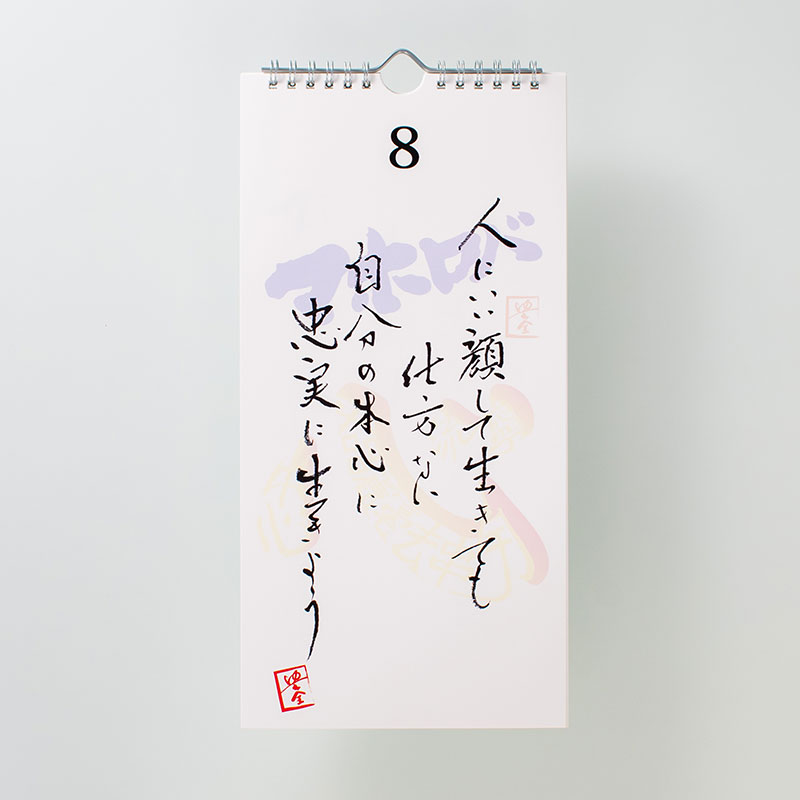 8
人にいい顔して生きても
仕方ない
自分の本心に
忠実に生きよう
マホロバ